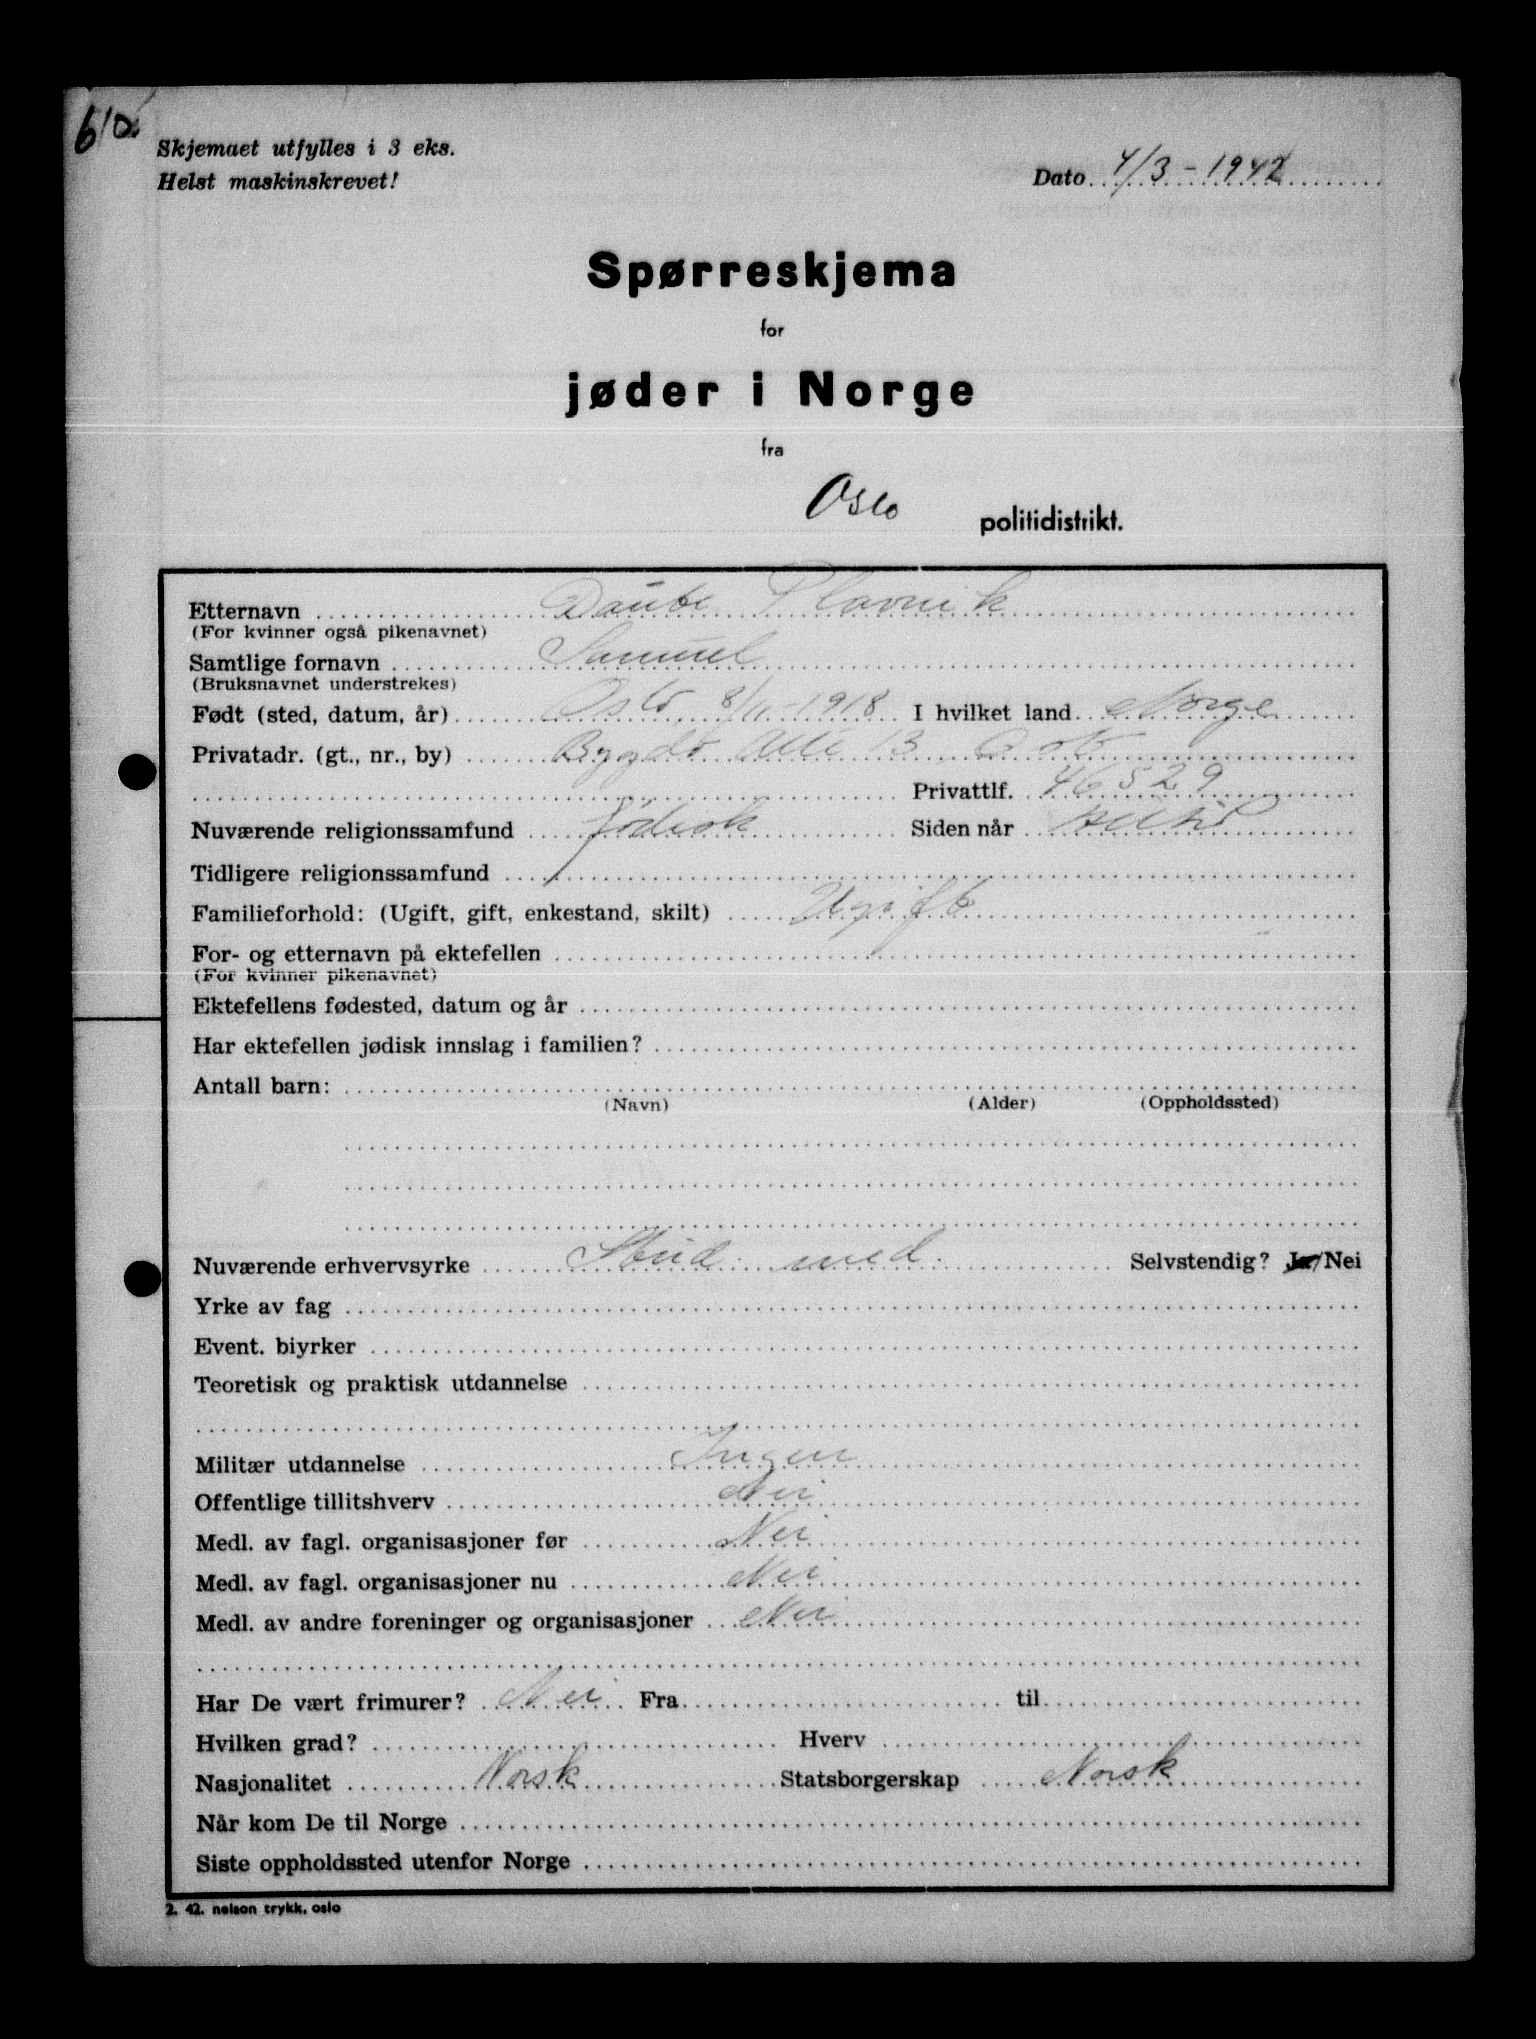 610.
Skjemaet utfylles i 3 eks.
Helst maskinskrevet!
Dato 4/3-1942
Spørreskjema
for
jøder i Norge
fra
Oslo politidistrikt.
Etternavn Daube Plavnik
(For kvinner også pikenavnet)
Samtlige fornavn Samuel
(Bruksnavnet understrekes)
Født (sted, datum, år) Oslo, 8/11-1918 I hvilket land Norge
Privatadr. (gt., nr., by) Bygdø Alle 13 Oslo
Privattlf. 46529
Nuværende religionssamfund Jødisk Siden når Alltid
Tidligere religionssamfund
Familieforhold: (Ugift, gift, enkestand, skilt) Ugift
For- og etternavn på ektefellen
(For kvinner pikenavnet)
Ektefellens fødested, datum og år
Har ektefellen jødisk innslag i familien?
Antall barn:
(Navn) (Alder) (Oppholdssted)
Nuværende erhvervsyrke Stud. med. Selvstendig? Ja/Nei
Yrke av fag
Event. biyrker
Teoretisk og praktisk utdannelse
Militær utdannelse Ingen
Offentlige tillitshverv Nei
Medl. av fagl. organisasjoner før Nei
Medl. av fagl. organisasjoner nu Nei
Medl. av andre foreninger og organisasjoner Nei
Har De vært frimurer? Nei Fra til
Hvilken grad? Hverv
Nasjonalitet Norsk Statsborgerskap Norsk
Når kom De til Norge
Siste oppholdssted utenfor Norge
2. 42. nelson trykk, oslo